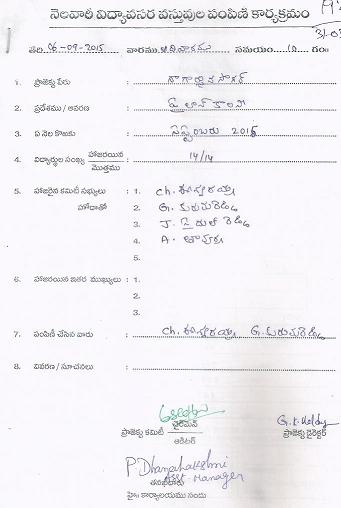 నెలవారీ విద్యావసర వస్తువుల పంపిణీ కార్యక్రమం
తేది: 06-09-2015 వారము: ఆదివారము సమయం: 10 గం
1. ప్రాజెక్టు పేరు : నాగార్జున సాగర్
2. ప్రదేశము / ఆవరణ : పైలాన్ కాలనీ
3. ఏ నెల కొఱకు : సెప్టెంబరు 2015
4. విద్యార్థుల సంఖ్య హాజరయిన / మొత్తము : 14/14
5. హాజరైన కమిటీ సభ్యులు : 1. Ch. ఈశ్వరయ్య
హోదాతో 2. G. కురుమరెడ్డి
3. J.
4. A.
5.
6. హాజరయిన ఇతర ముఖ్యులు : 1.
2.
3.
7. పంపిణీ చేసిన వారు : Ch. ఈశ్వరయ్య G. కురుమరెడ్డి
8. వివరణ / సూచనలు :
ప్రాజెక్టు కమిటీ ఛైర్మెన్ / ఆడిటర్
G.K. Reddy
ప్రాజెక్టు డైరెక్టర్
P. Dhanalakshmi
Asst Manager
తనిఖీదారు
హై॥ కార్యాలయము నందు